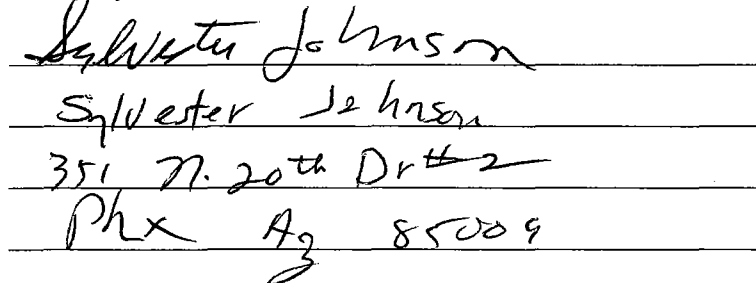 Sylvester Johnson
Sylvester Johnson
351 N. 20th Dr #2
Phx Az 85009